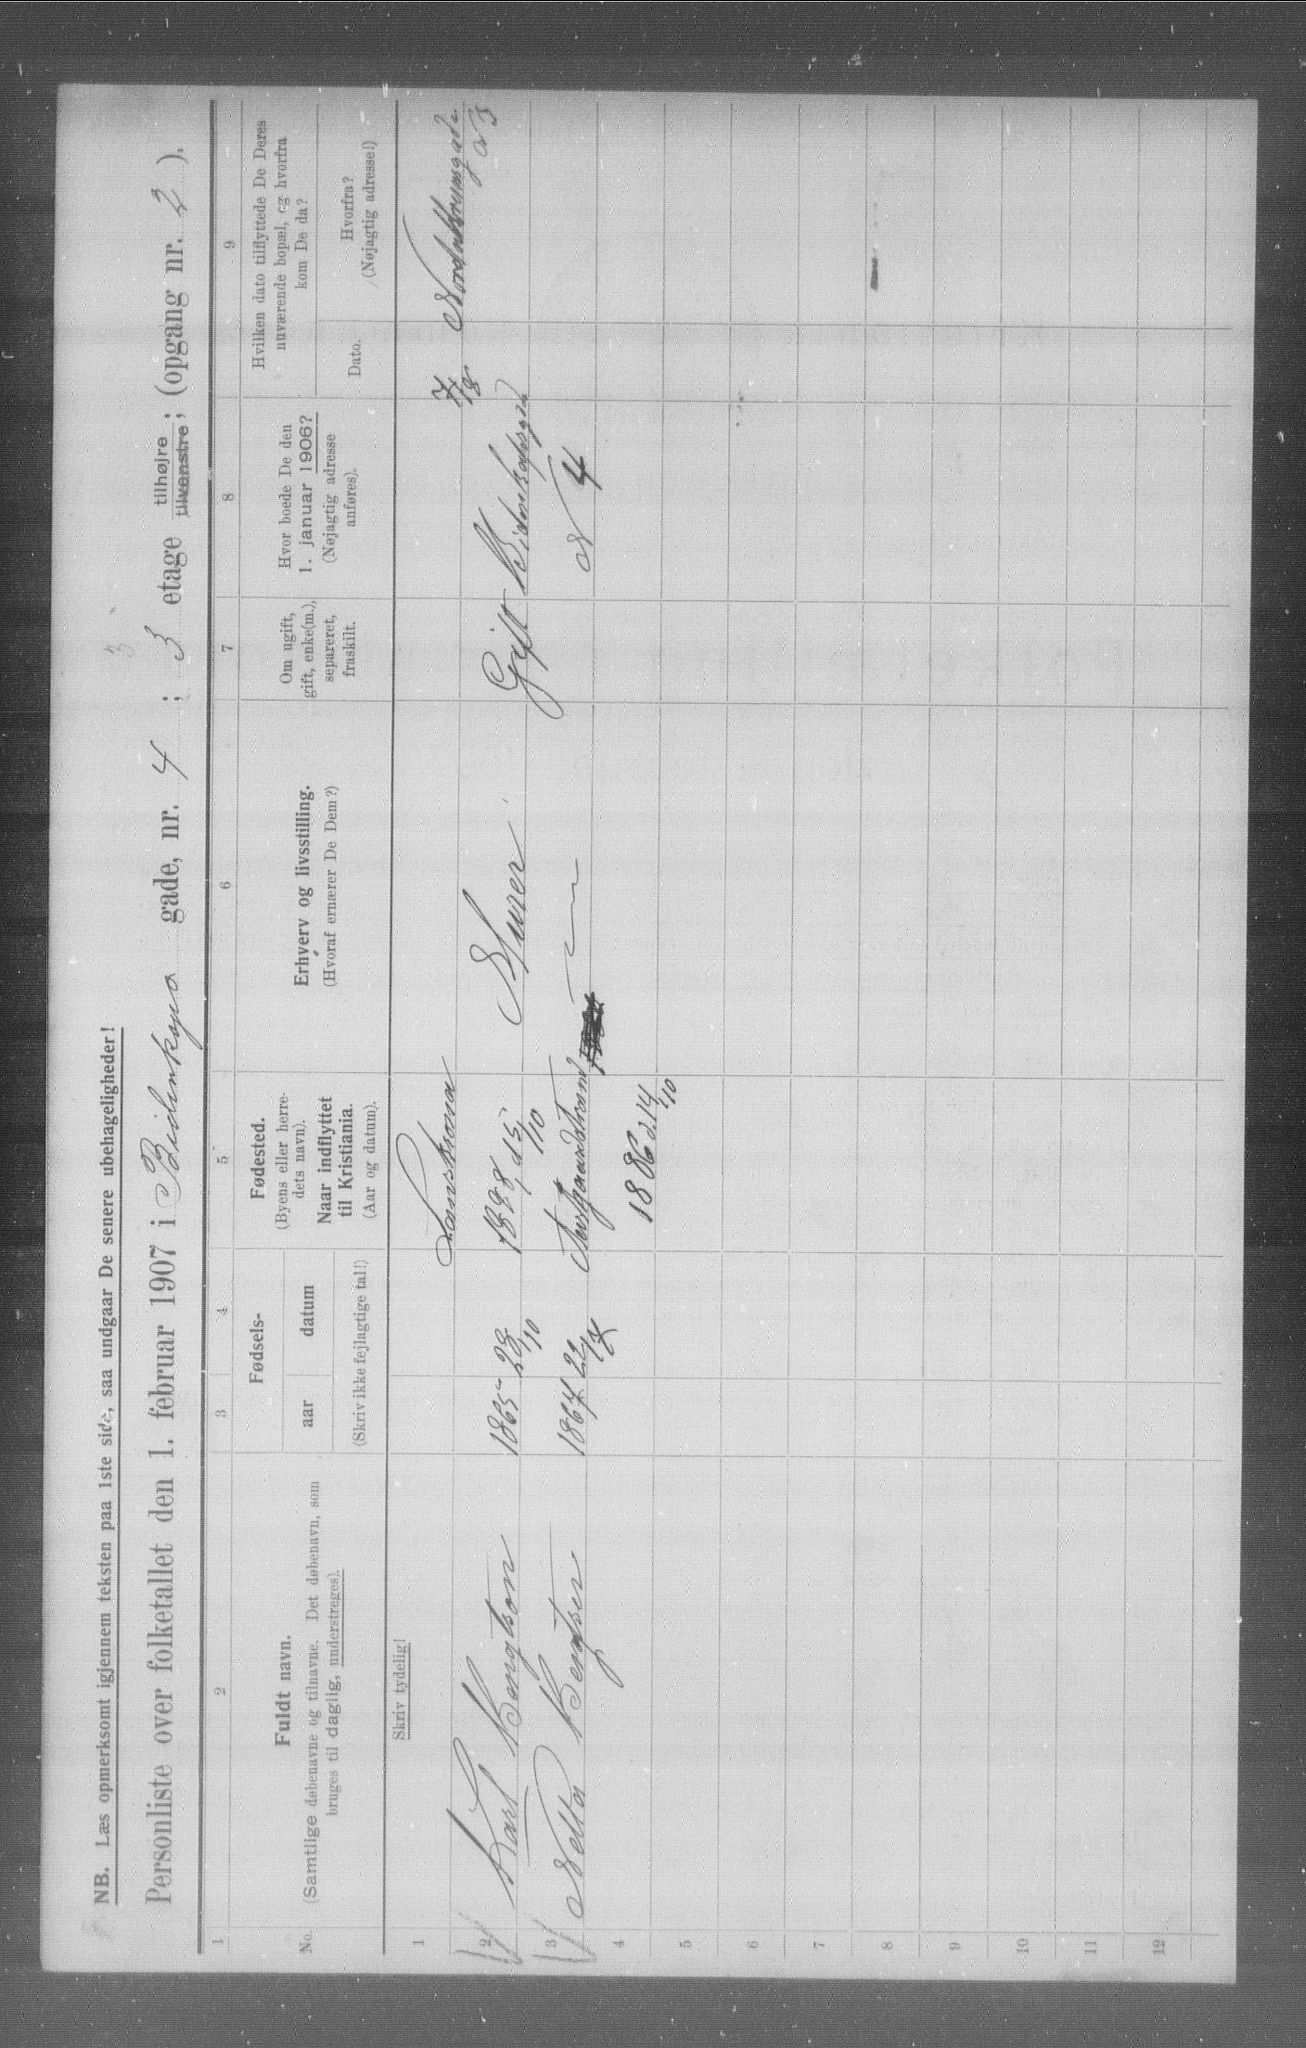 NB. Læs opmerksomt igjennem teksten paa 1ste side, saa undgaar De senere ubehageligheder!
Personliste over folketallet den 1. februar 1907 i Bidenkaps gade, nr. 4 ; 3 etage tilhøjre ; (opgang nr. 2 ).
tilvenstre
1 2 3 4 5 6 7 8 9
No.
Fuldt navn.
(Samtlige døbenavne og tilnavne. Det døbenavn, som
bruges til daglig, understreges).
Fødsels-
aar datum
(Skriv ikke fejlagtige tal!)
Fødested.
(Byens eller herre-
dets navn).
Naar indflyttet
til Kristiania.
(Aar og datum).
Erhverv og livsstilling.
(Hvoraf ernærer De Dem?)
Om ugift,
gift, enke(m.),
separeret,
fraskilt.
Hvor boede De den
1. januar 1906?
(Nøjagtig adresse
anføres).
Hvilken dato tilflyttede De Deres
nuværende bopæl, og hvorfra
kom De da?
Dato.
Hvorfra?
(Nøjagtig adresse!)
Skriv tydelig!
1
Lanskrona
7/8
2 Karl Bengtson 1865 28/10 1888, d 15/10 Murer Gift Bidenkapsgade
N 3
3 Netta Bengtsen 1867
N 4
4 1886 d. 14/10
5
6
7
8
9
10
11
12